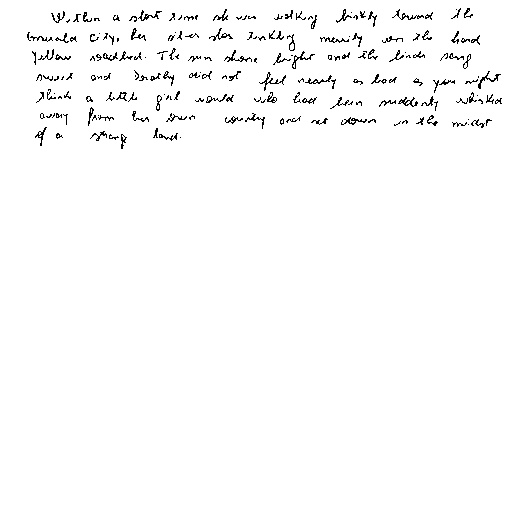 Within a short time she was walking briskly toward the
Emerald City, her silver shoes tinkling merrily on the hard
yellow roadbed. The sun shone bright and the birds sang
sweet and Dorothy did not feel nearly as bad as you might
think a little girl would who had been suddenly whisked
away from her own country and set down in the midst
of a strange land.